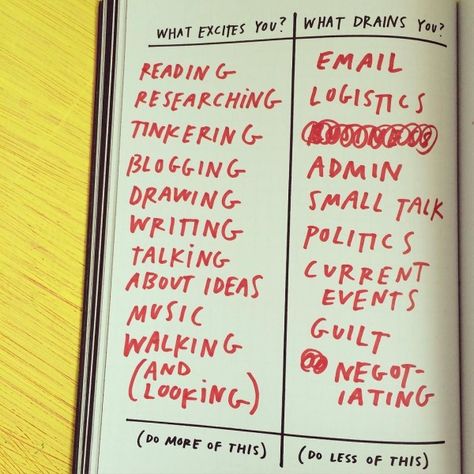 WHAT EXCITES YOU?
READING
RESEARCHING
TINKERING
BLOGGING
DRAWING
WRITING
TALKING
ABOUT IDEAS
MUSIC
WALKING
(AND
LOOKING)
(DO MORE OF THIS)
WHAT DRAINS YOU?
EMAIL
LOGISTICS
ADMIN
SMALL TALK
POLITICS
CURRENT
EVENTS
GUILT
NEGOT-
IATING
(DO LESS OF THIS)